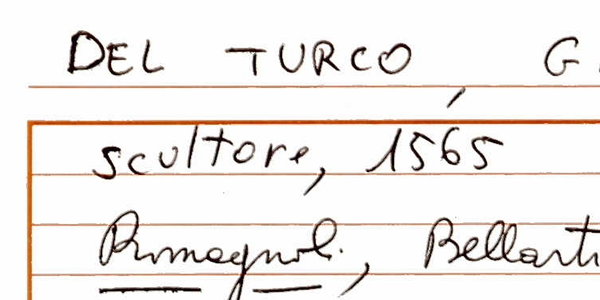 DEL TURCO, G
scultore, 1565
Romagnoli, Bellarti